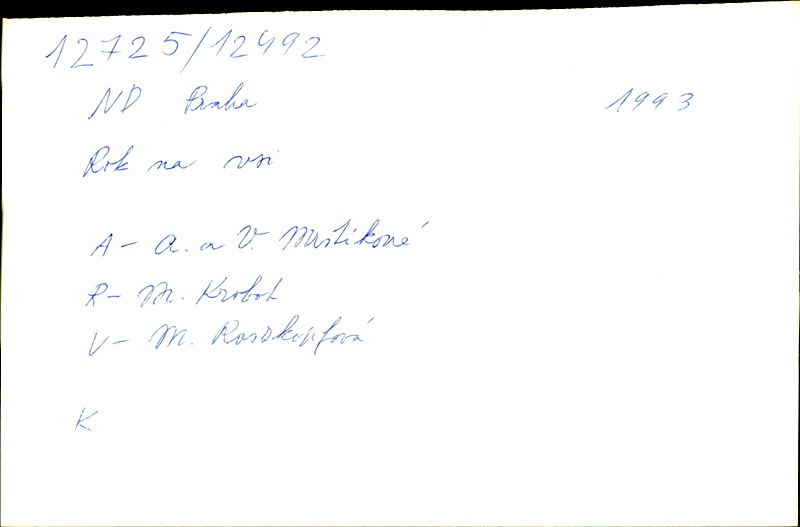 12725/12492
ND Praha 1993
Rok na vsi
A - A. a V. Mrštíkové
R - M. Krobot
V - M. Roszkopfová
K